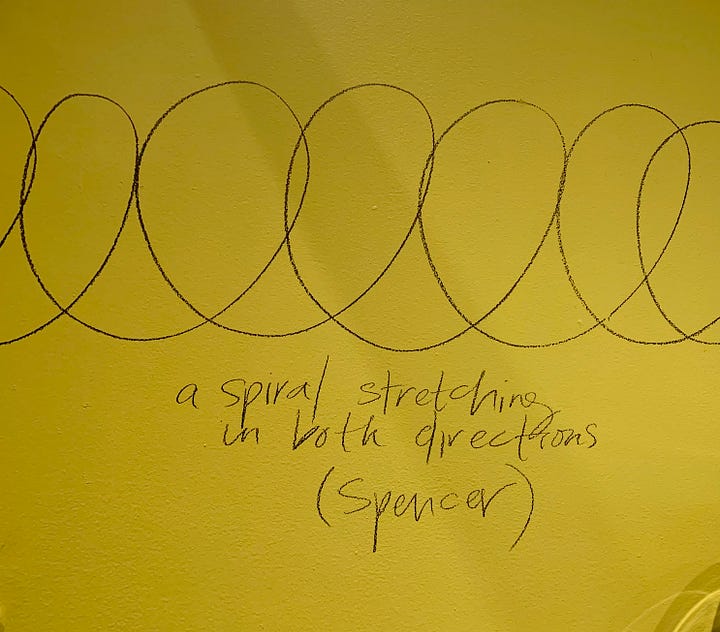 a spiral stretching
in both directions
(Spencer)